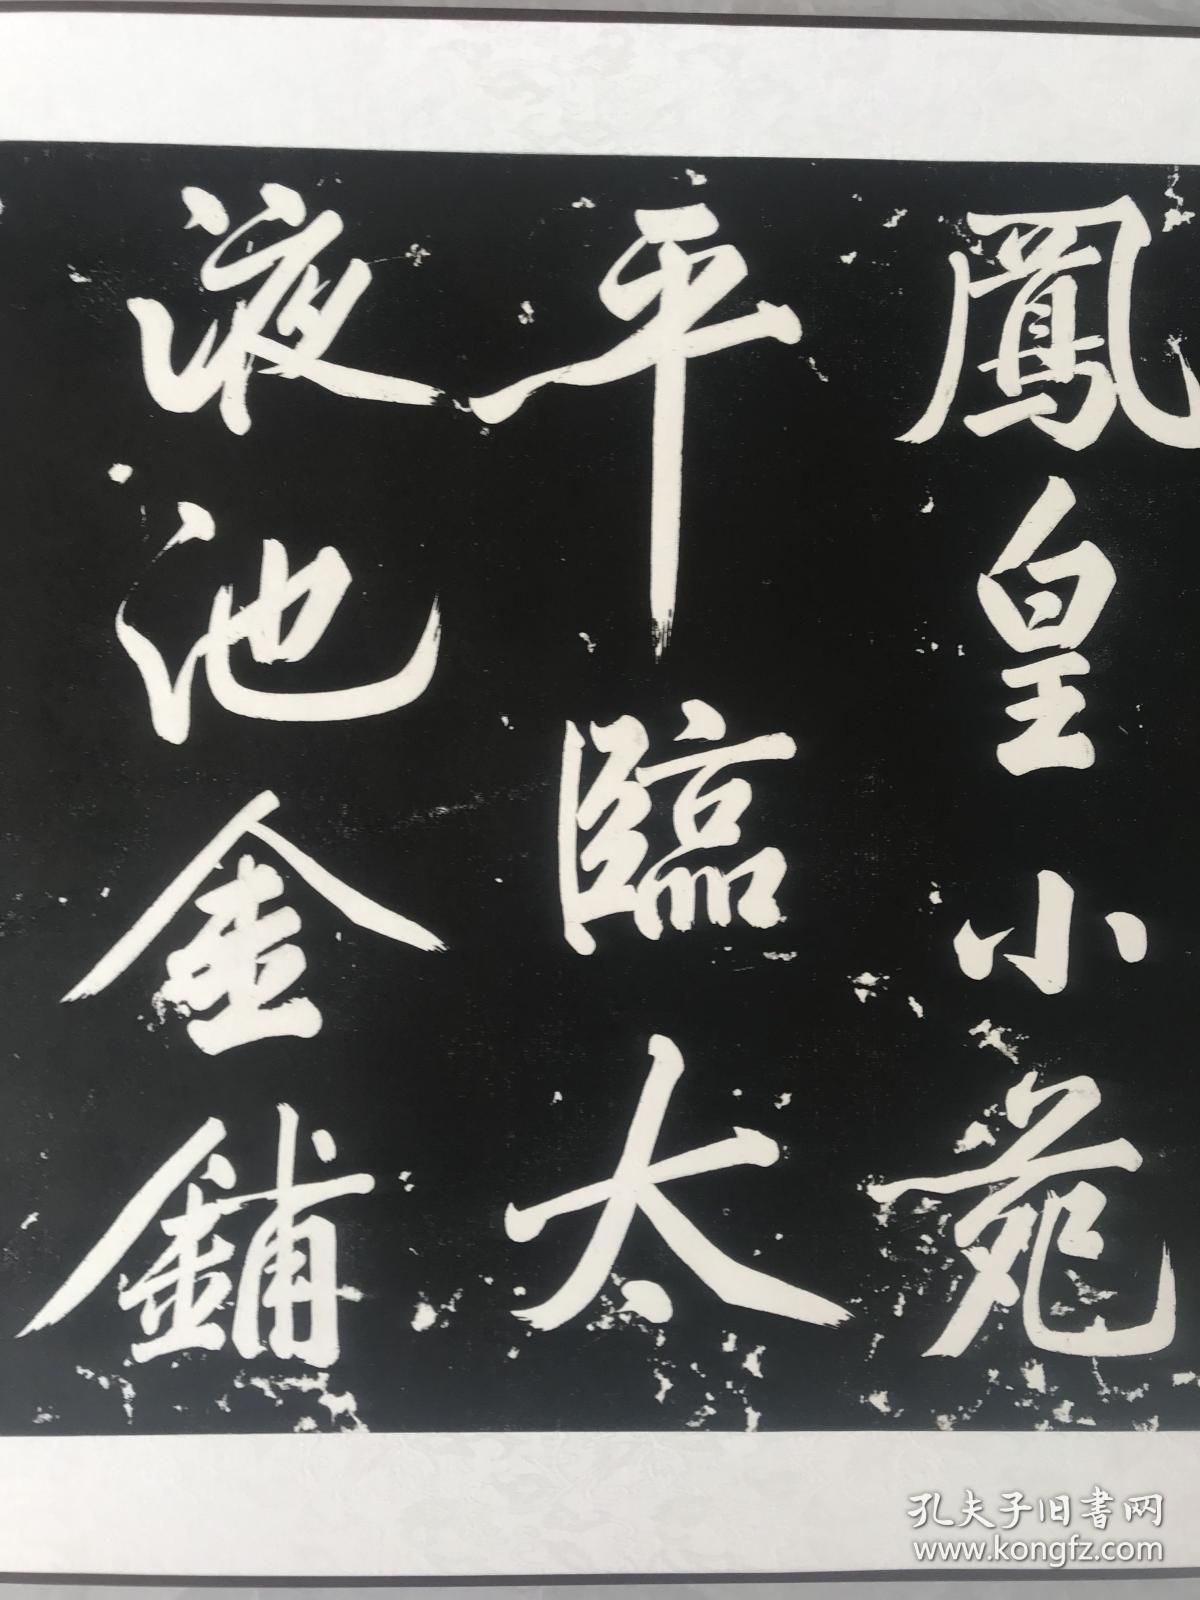 鳳皇小苑
平臨太
液池金鋪
孔夫子旧书网
www.kongfz.com